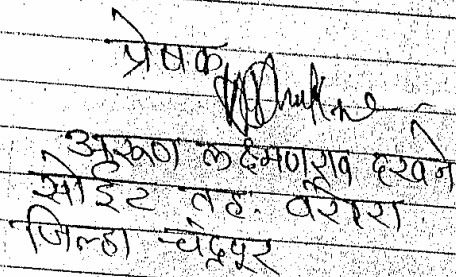 प्रेषक
अरूण लक्ष्मणराव दखने
सोईट तह. वरोरा
जिल्हा चंद्रपूर